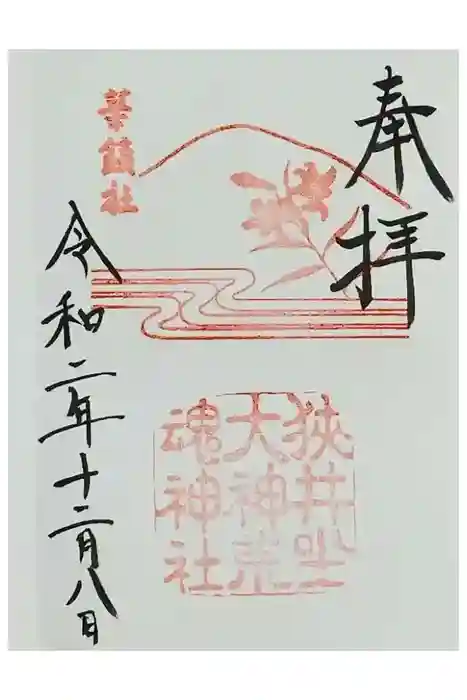 奉拝
華鎮社
狭井坐
大神荒
魂神社
令和二年十二月八日